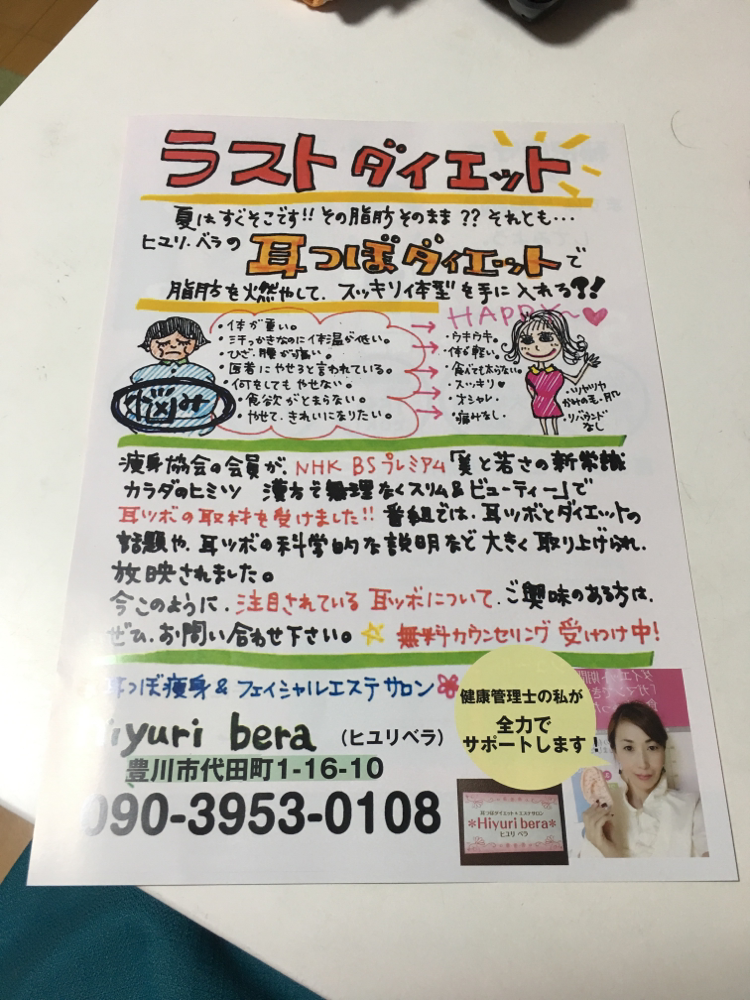 ラスト ダイエット
夏はすぐそこです!! その脂肪そのまま?? それとも…
ヒユリ.ベラの 耳つぼダイエットで
脂肪を燃やして、スッキリ体型を手に入れる?!
HAPPY〜
・体が重い。
・汗っかきなのに体温が低い。
・ひざ、腰が痛い。
・医者にやせろと言われている。
・何をしてもやせない。
・食欲がとまらない。
・やせて、きれいになりたい。
悩み
・ウキウキ。
・体が軽い。
・食べても太らない
・スッキリ♥
・オシャレ.
・痛みなし.
・ツヤツヤ
かみの毛・肌
・リバウンド
なし
痩身協会の会員が、NHK BSプレミアム「美と若さの新常識
カラダのヒミツ 漢方で無理なくスリム&ビューティー」で
耳ツボの取材を受けました!! 番組では、耳ツボとダイエットの
話題や、耳ツボの科学的な説明など大きく取り上げられ、
放映されました。
今このように、注目されている耳ツボについて、ご興味のある方は、
ぜひ、お問い合わせ下さい。☆ 無料カウンセリング受けつけ中!
耳つぼ痩身&フェイシャルエステサロン
Hiyuri bera (ヒユリベラ)
豊川市代田町1-16-10
090-3953-0108
健康管理士の私が
全力で
サポートします!
耳つぼダイエット+エステサロン
*Hiyuri bera*
ヒユリ ベラ